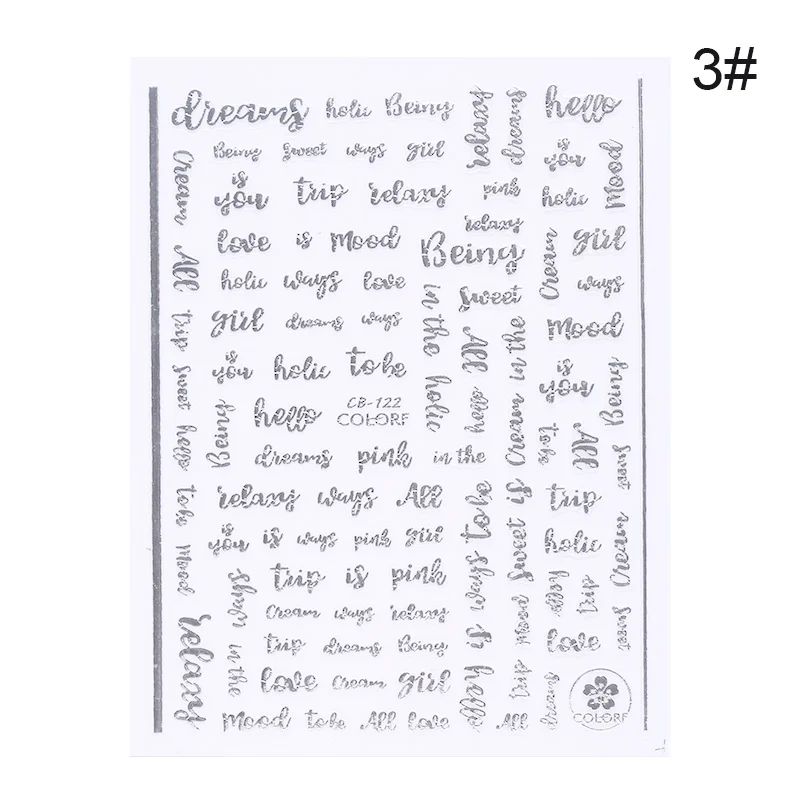 3#
dreams holic Being
relaxy
dreams
hello
Being sweet ways girl
is
you
Cream
is
you
trip relaxy pink
holic
Mood
relaxy
love is Mood
Being
Cream
girl
All
holic ways love
sweet
ways
girl dreams ways
in the holic
All
Mood
trip
is
you
holic to be
is
you
Being
sweet
hello
CB-122
COLORF
hello
Cream in the
to be
All
hello
Being
dreams pink in the
sweet
to be
relaxy ways All
is ways to be
Sweet is
trip
is
you
is ways pink girl
holic
Cream
Mood
trip is pink
ways
trip
Cream ways relaxy
Mood
sweet
relaxy
in the
trip dreams Being
love
love Cream girl
trip
dreams
COLORF
Mood to be All love
All